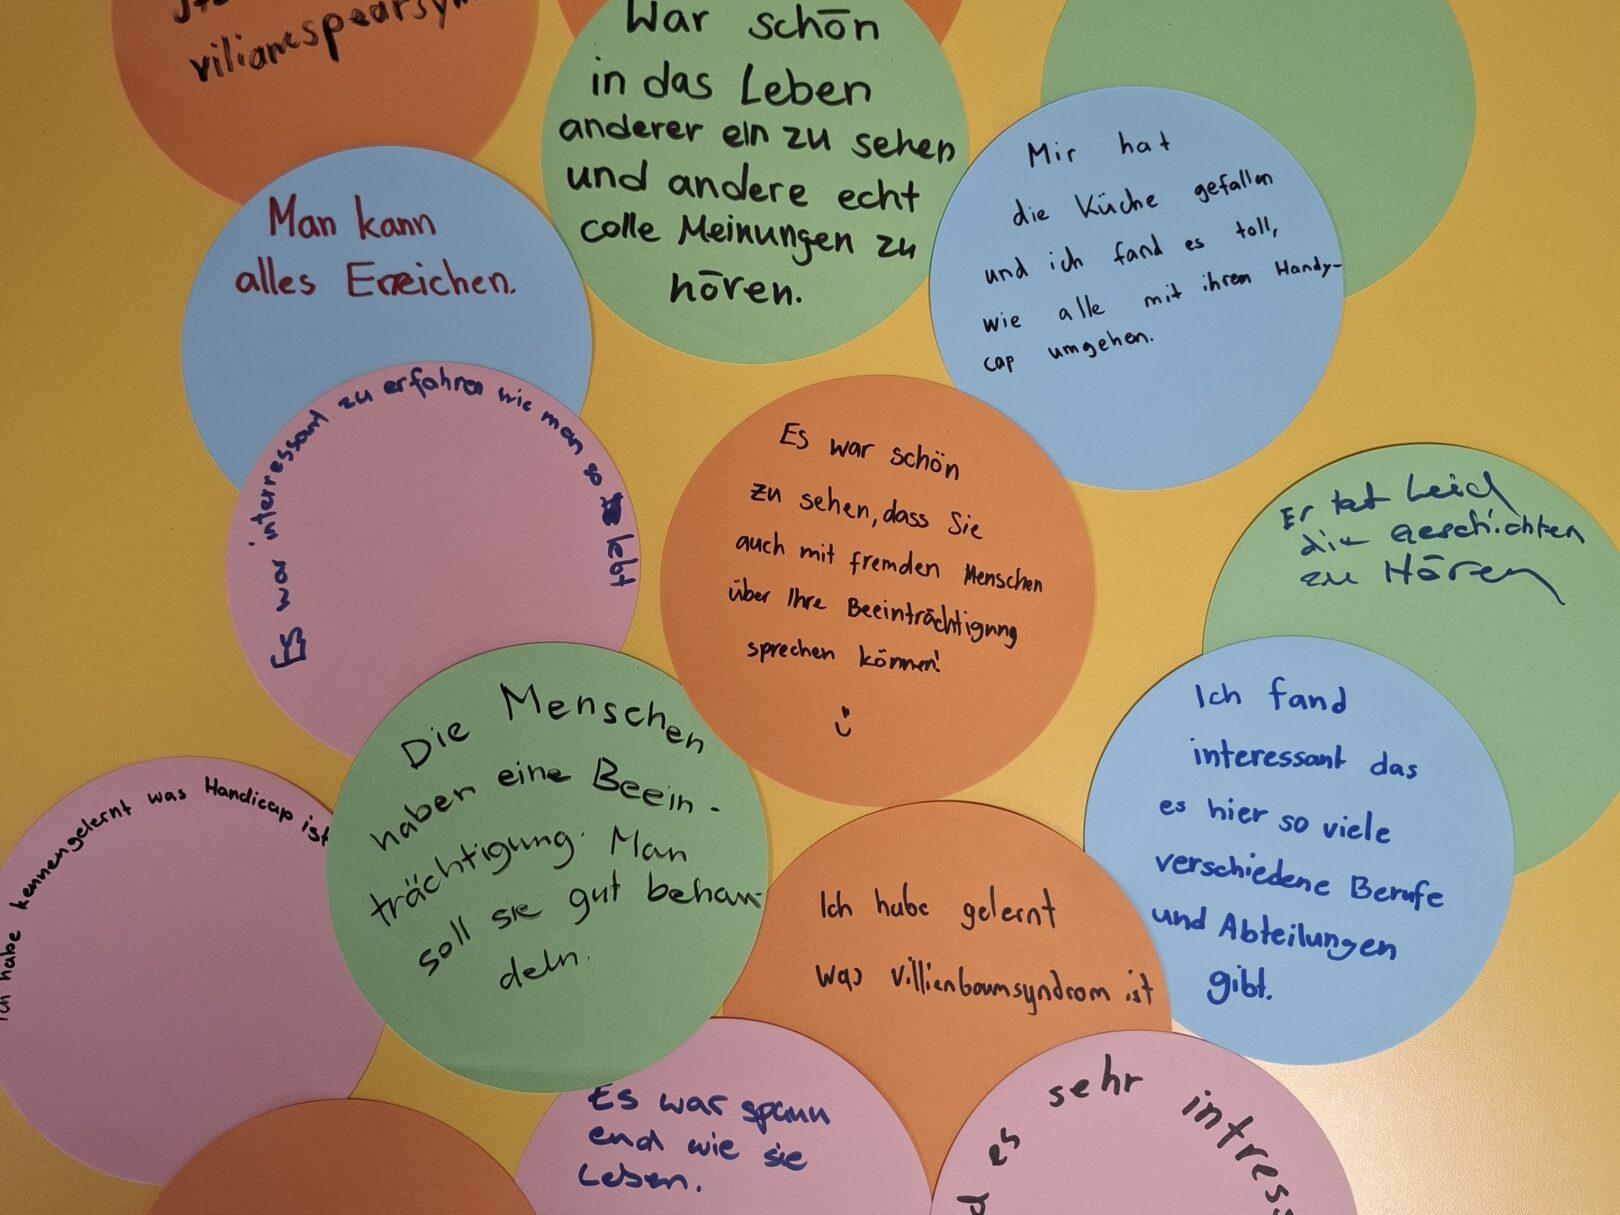 War schön
in das Leben
anderer ein zu sehen
und andere echt
colle Meinungen zu
hören.
Man kann
alles Erreichen.
Mir hat
die Küche gefallen
und ich fand es toll,
wie alle mit ihrem Handy-
cap umgehen.
Es war interressant zu erfahren wie man so lebt
Es war schön
zu sehen, dass Sie
auch mit fremden Menschen
über Ihre Beeinträchtigung
sprechen können!
Er tat Leid
die Geschichten
zu Hören
Die Menschen
haben eine Beein-
trächtigung. Man
soll sie gut behan-
deln.
Ich fand
interessant das
es hier so viele
verschiedene Berufe
und Abteilungen
gibt.
Ich habe kennengelernt was Handicap ist
Ich habe gelernt
was villienboumsyndrom ist
Es war spann
end wie sie
Leben.
es sehr intress